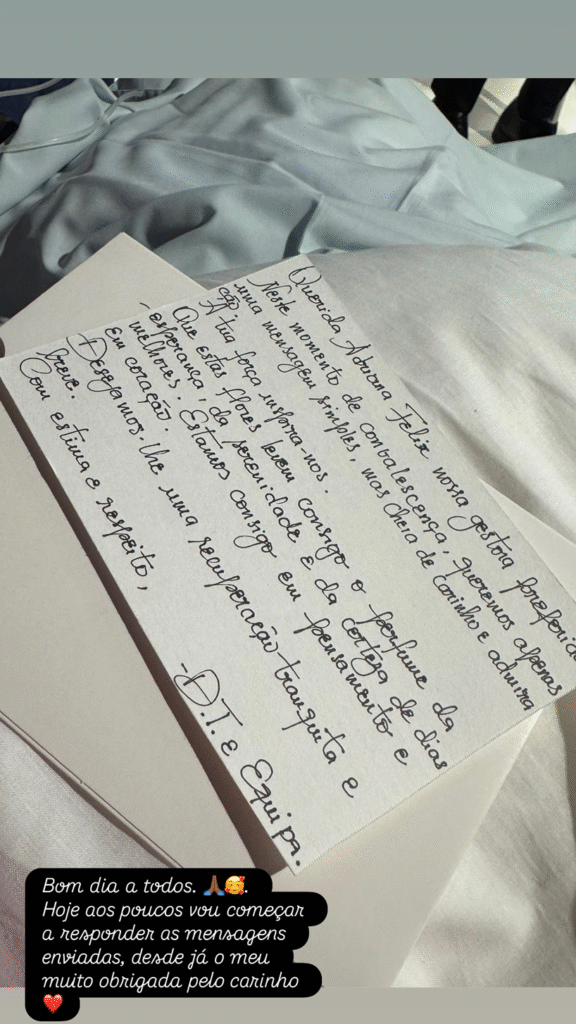 Querida Adriana Felix nossa gestora preferida
Neste momento de convalescença, queremos apenas
uma mensagem simples, mas cheia de carinho e admira
ção.
A tua força inspira-nos.
Que estas flores levem consigo o perfume da
-esperança, da serenidade e da certeza de dias
melhores. Estamos consigo em pensamento e
em coração.
Desejamos-lhe uma recuperação tranquila e
breve.
Com estima e respeito,
-D.T. e Equipa.
Bom dia a todos. 🙏🏾🥰.
Hoje aos poucos vou começar
a responder as mensagens
enviadas, desde já o meu
muito obrigada pelo carinho
❤️